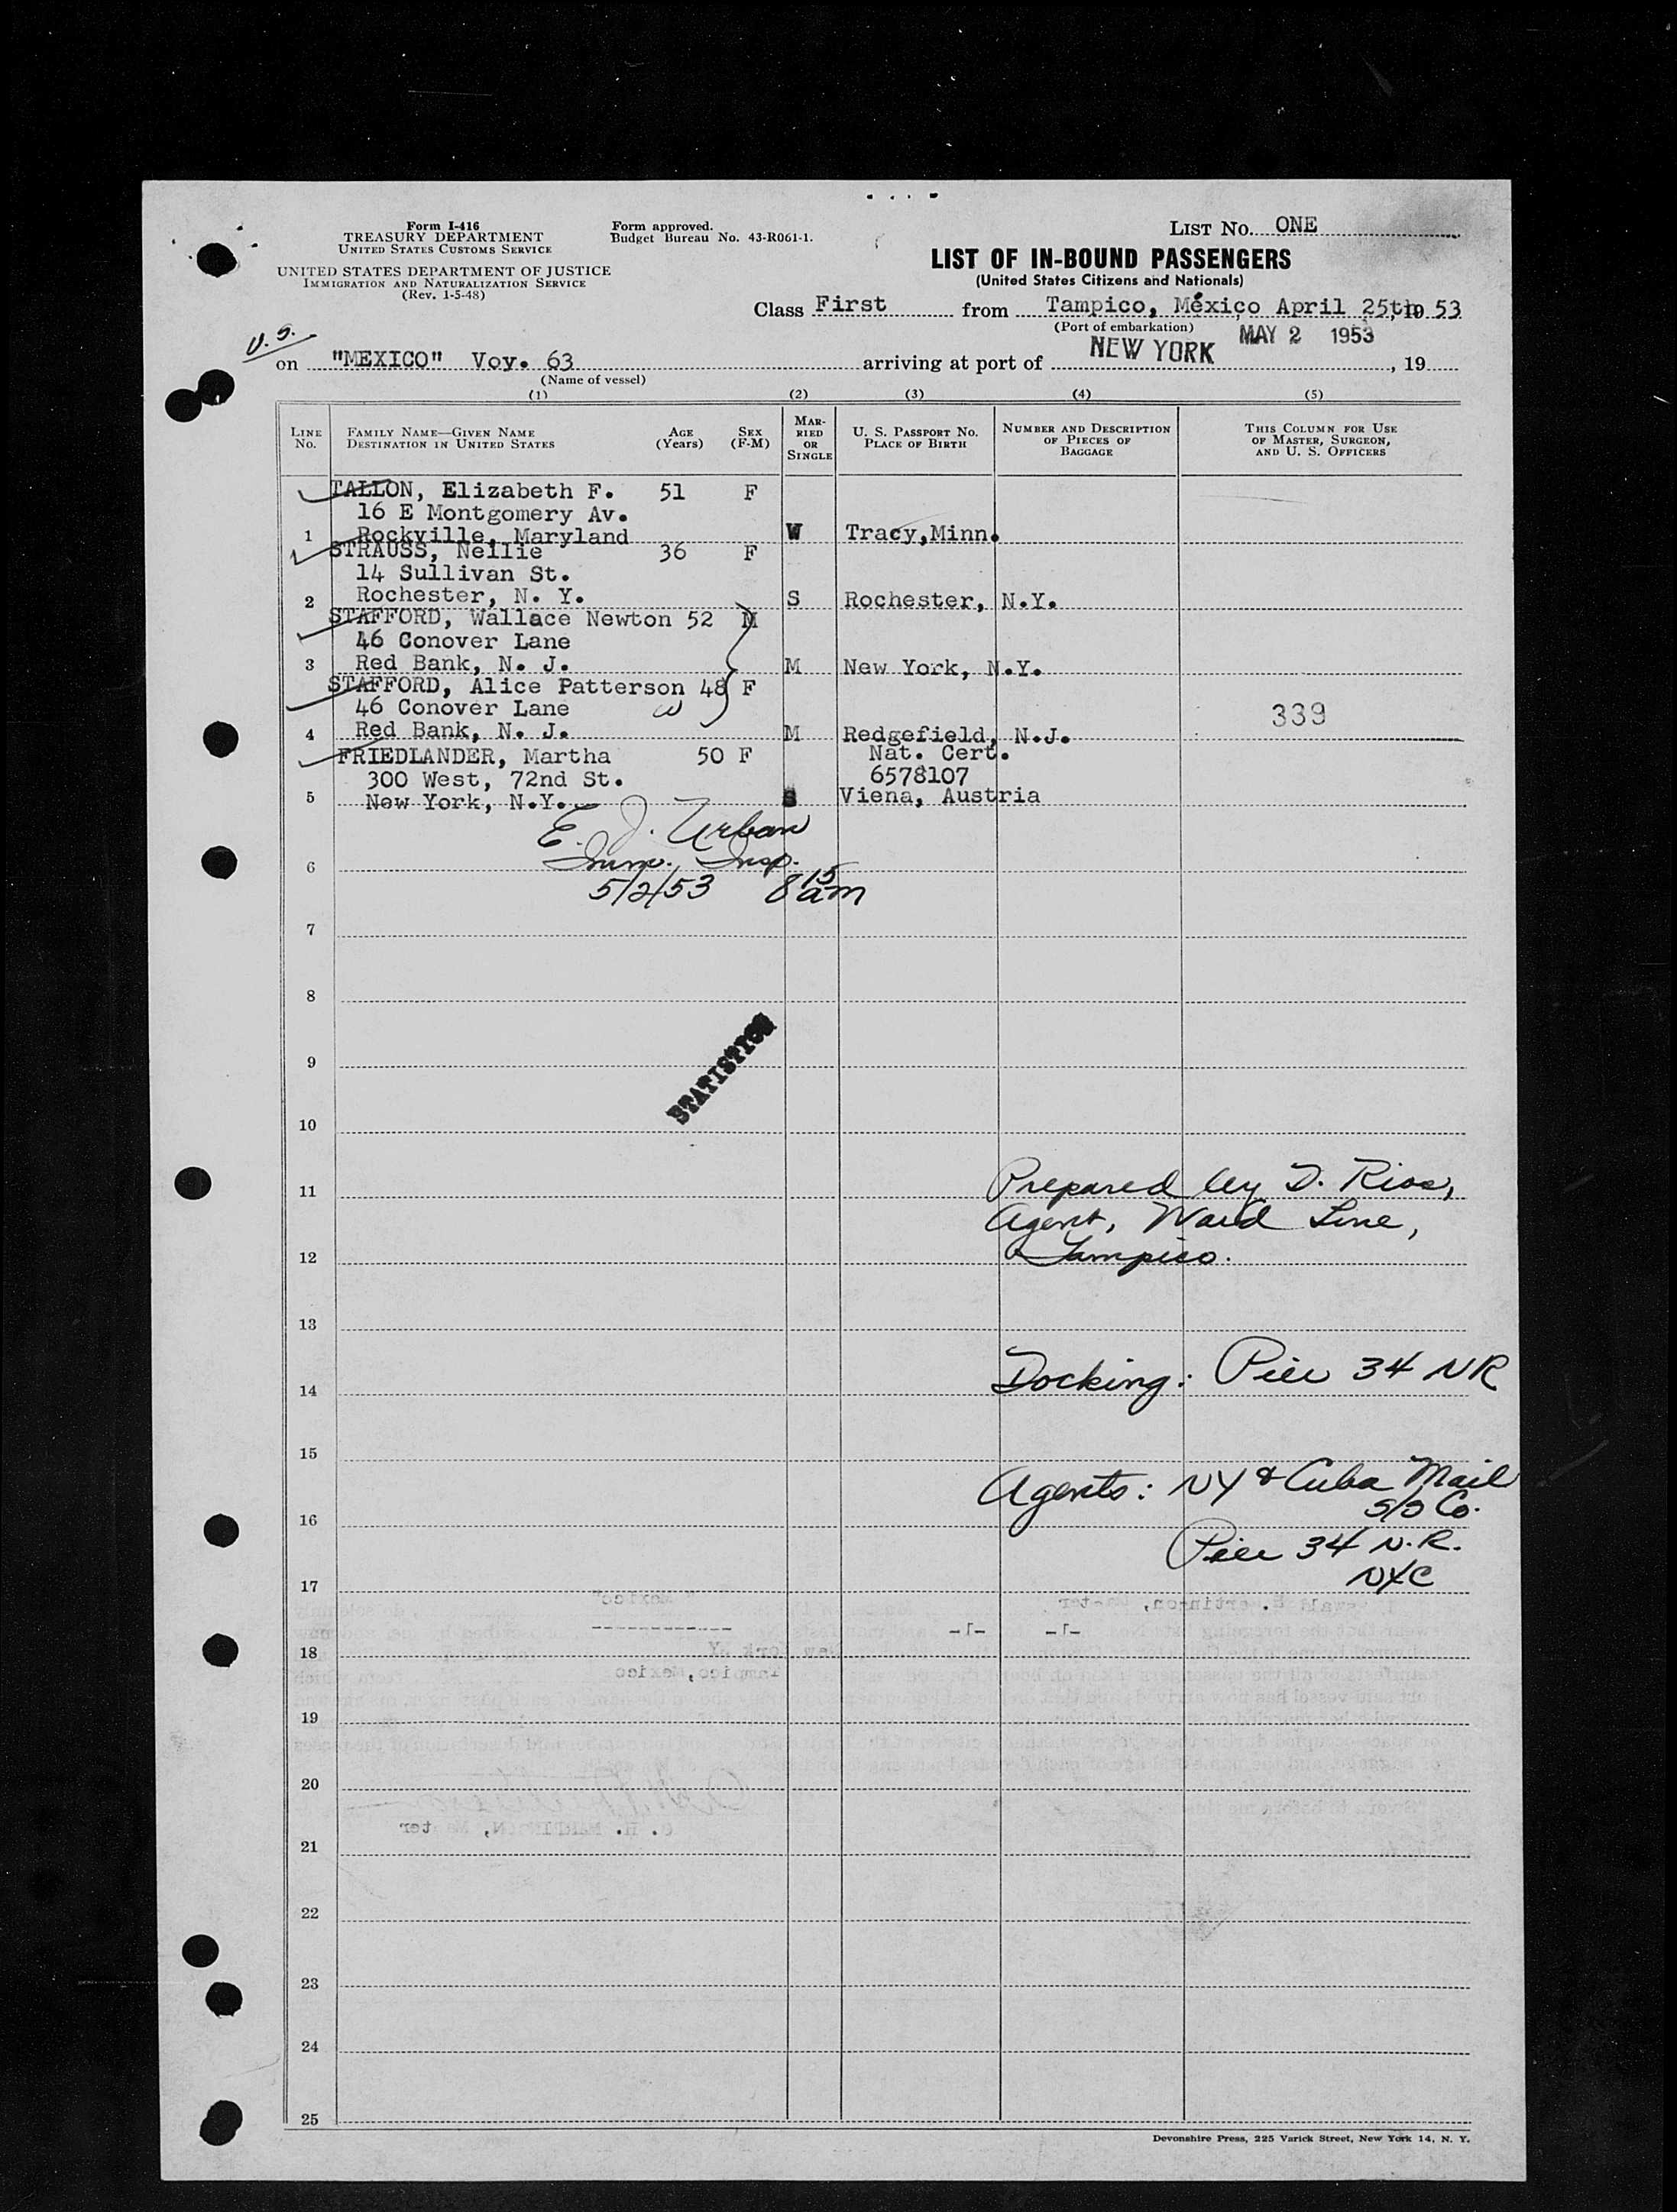 Form I-416
TREASURY DEPARTMENT
UNITED STATES CUSTOMS SERVICE
UNITED STATES DEPARTMENT OF JUSTICE
IMMIGRATION AND NATURALIZATION SERVICE
(Rev. 1-5-48)
Form approved.
Budget Bureau No. 43-R061-1.
LIST NO. ONE
LIST OF IN-BOUND PASSENGERS
(United States Citizens and Nationals)
Class First from Tampico, México April 25th, 19 53
(Port of embarkation)
MAY 2 1953
U.S.
on "MEXICO" Voy. 63 arriving at port of NEW YORK, 19
(Name of vessel)
(1) (2) (3) (4) (5)
LINE NO.
FAMILY NAME—GIVEN NAME
DESTINATION IN UNITED STATES
AGE (Years)
SEX (F-M)
MARRIED OR SINGLE
U. S. PASSPORT NO.
PLACE OF BIRTH
NUMBER AND DESCRIPTION OF PIECES OF BAGGAGE
THIS COLUMN FOR USE OF MASTER, SURGEON, AND U. S. OFFICERS
TALLON, Elizabeth F. 51 F
16 E Montgomery Av.
1 Rockville, Maryland W Tracy,Minn.
STRAUSS, Nellie 36 F
14 Sullivan St.
2 Rochester, N. Y. S Rochester, N.Y.
STAFFORD, Wallace Newton 52 M
46 Conover Lane
3 Red Bank, N. J. M New York, N.Y.
STAFFORD, Alice Patterson 48 F
46 Conover Lane W 339
4 Red Bank, N. J. M Redgefield, N.J.
FRIEDLANDER, Martha 50 F Nat. Cert.
300 West, 72nd St. 6578107
5 New York, N.Y. S Viena, Austria
E. J. Urban
6 Imm. Insp.
5/2/53 8 15 am
7
8
9
STATISTICS
10
11 Prepared by D. Rios,
Agent, Ward Line,
12 Tampico.
13
14 Docking: Pier 34 NR
15
Agents: NY & Cuba Mail
16 S/S Co.
Pier 34 N.R.
17 NYC
18
19
20
21
22
23
24
25
Devonshire Press, 225 Varick Street, New York 14, N. Y.